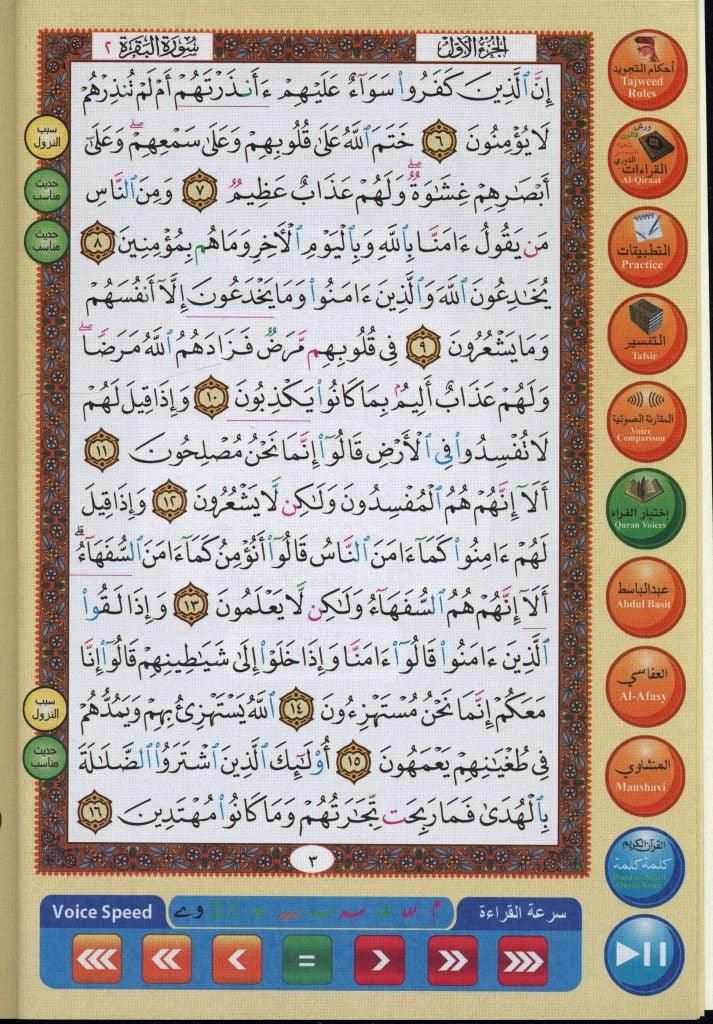 الجزء الأول
سورة البقرة ٢
إِنَّ ٱلَّذِينَ كَفَرُوا۟ سَوَآءٌ عَلَيْهِمْ ءَأَنذَرْتَهُمْ أَمْ لَمْ تُنذِرْهُمْ
لَا يُؤْمِنُونَ ٦ خَتَمَ ٱللَّهُ عَلَىٰ قُلُوبِهِمْ وَعَلَىٰ سَمْعِهِمْ ۖ وَعَلَىٰٓ
أَبْصَـٰرِهِمْ غِشَـٰوَةٌ ۖ وَلَهُمْ عَذَابٌ عَظِيمٌ ٧ وَمِنَ ٱلنَّاسِ
مَن يَقُولُ ءَامَنَّا بِٱللَّهِ وَبِٱلْيَوْمِ ٱلْـَٔاخِرِ وَمَا هُم بِمُؤْمِنِينَ ٨
يُخَـٰدِعُونَ ٱللَّهَ وَٱلَّذِينَ ءَامَنُوا۟ وَمَا يَخْدَعُونَ إِلَّآ أَنفُسَهُمْ
وَمَا يَشْعُرُونَ ٩ فِى قُلُوبِهِم مَّرَضٌ فَزَادَهُمُ ٱللَّهُ مَرَضًا ۖ
وَلَهُمْ عَذَابٌ أَلِيمٌۢ بِمَا كَانُوا۟ يَكْذِبُونَ ١٠ وَإِذَا قِيلَ لَهُمْ
لَا تُفْسِدُوا۟ فِى ٱلْأَرْضِ قَالُوٓا۟ إِنَّمَا نَحْنُ مُصْلِحُونَ ١١
أَلَآ إِنَّهُمْ هُمُ ٱلْمُفْسِدُونَ وَلَـٰكِن لَّا يَشْعُرُونَ ١٢ وَإِذَا قِيلَ
لَهُمْ ءَامِنُوا۟ كَمَآ ءَامَنَ ٱلنَّاسُ قَالُوٓا۟ أَنُؤْمِنُ كَمَآ ءَامَنَ ٱلسُّفَهَآءُ ۗ
أَلَآ إِنَّهُمْ هُمُ ٱلسُّفَهَآءُ وَلَـٰكِن لَّا يَعْلَمُونَ ١٣ وَإِذَا لَقُوا۟
ٱلَّذِينَ ءَامَنُوا۟ قَالُوٓا۟ ءَامَنَّا وَإِذَا خَلَوْا۟ إِلَىٰ شَيَـٰطِينِهِمْ قَالُوٓا۟ إِنَّا
مَعَكُمْ إِنَّمَا نَحْنُ مُسْتَهْزِءُونَ ١٤ ٱللَّهُ يَسْتَهْزِئُ بِهِمْ وَيَمُدُّهُمْ
فِى طُغْيَـٰنِهِمْ يَعْمَهُونَ ١٥ أُو۟لَـٰٓئِكَ ٱلَّذِينَ ٱشْتَرَوُا۟ ٱلضَّلَـٰلَةَ
بِٱلْهُدَىٰ فَمَا رَبِحَت تِّجَـٰرَتُهُمْ وَمَا كَانُوا۟ مُهْتَدِينَ ١٦
٣
سبب
النزول
حديث
مناسب
حديث
مناسب
سبب
النزول
حديث
مناسب
أحكام التجويد
Tajweed
Rules
ورش
قالون
الدوري
القراءات
Al-Qiraat
التطبيقات
Practice
التفسير
Tafsir
المقارنة الصوتية
Voice
Comparison
إختيار القراء
Quran Voices
عبدالباسط
Abdul Basit
العفاسي
Al-Afasy
المنشاوي
Manshavi
القرآن الكريم
كلمة كلمة
Word by Word
Quran Voice
سرعة القراءة
Voice Speed